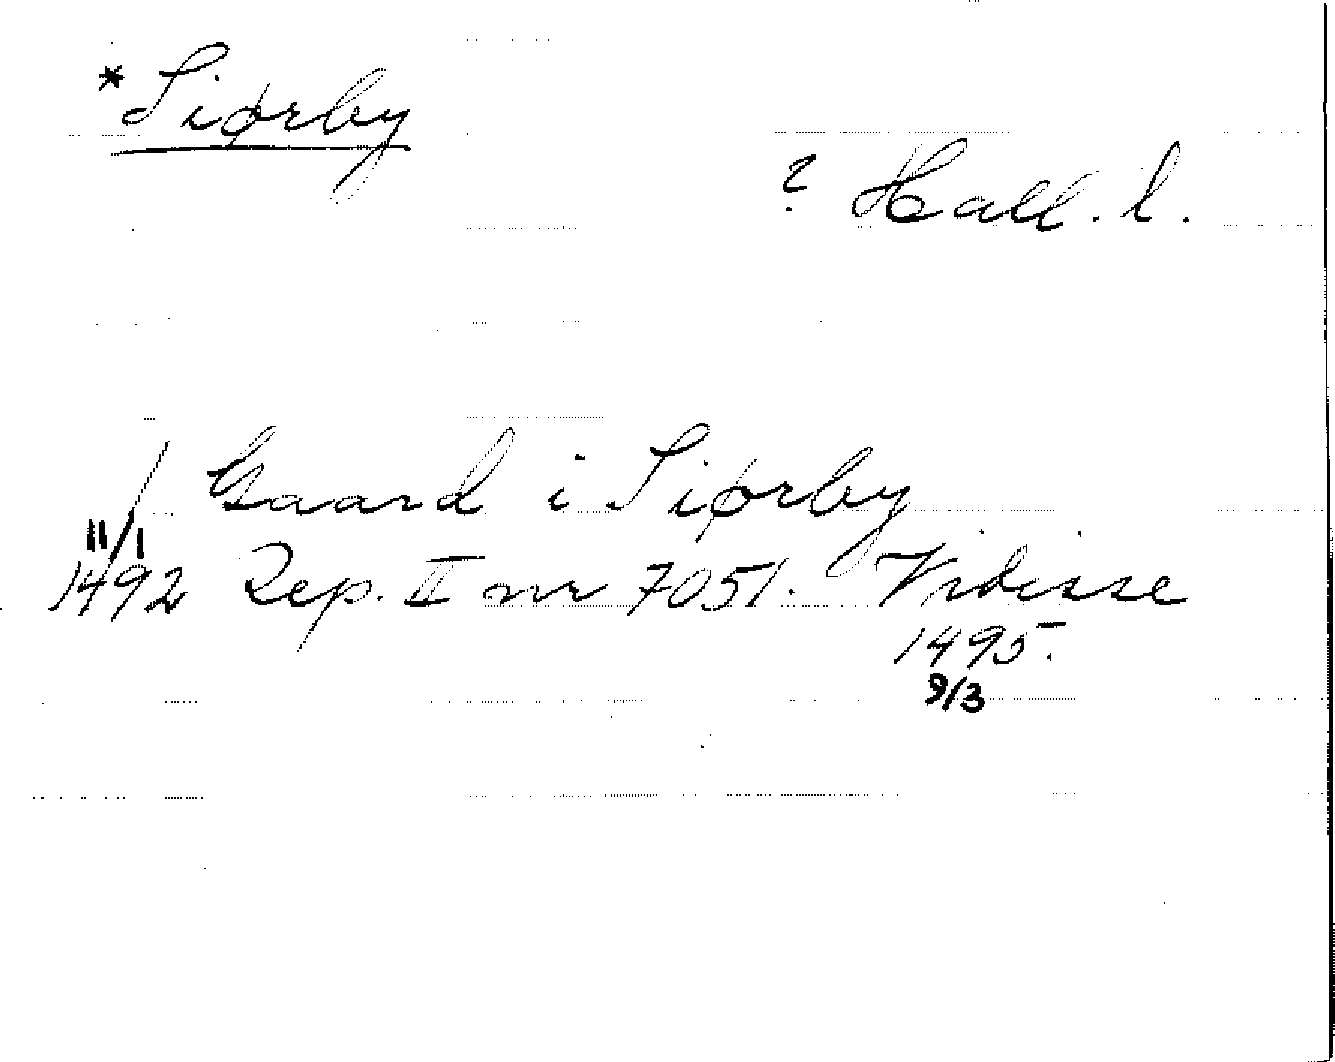 *Siørby
? Hall. l.
Gaard i Siørby
11/1 1492 Rep. II nr 7051. Vidisse
1495.
9/3